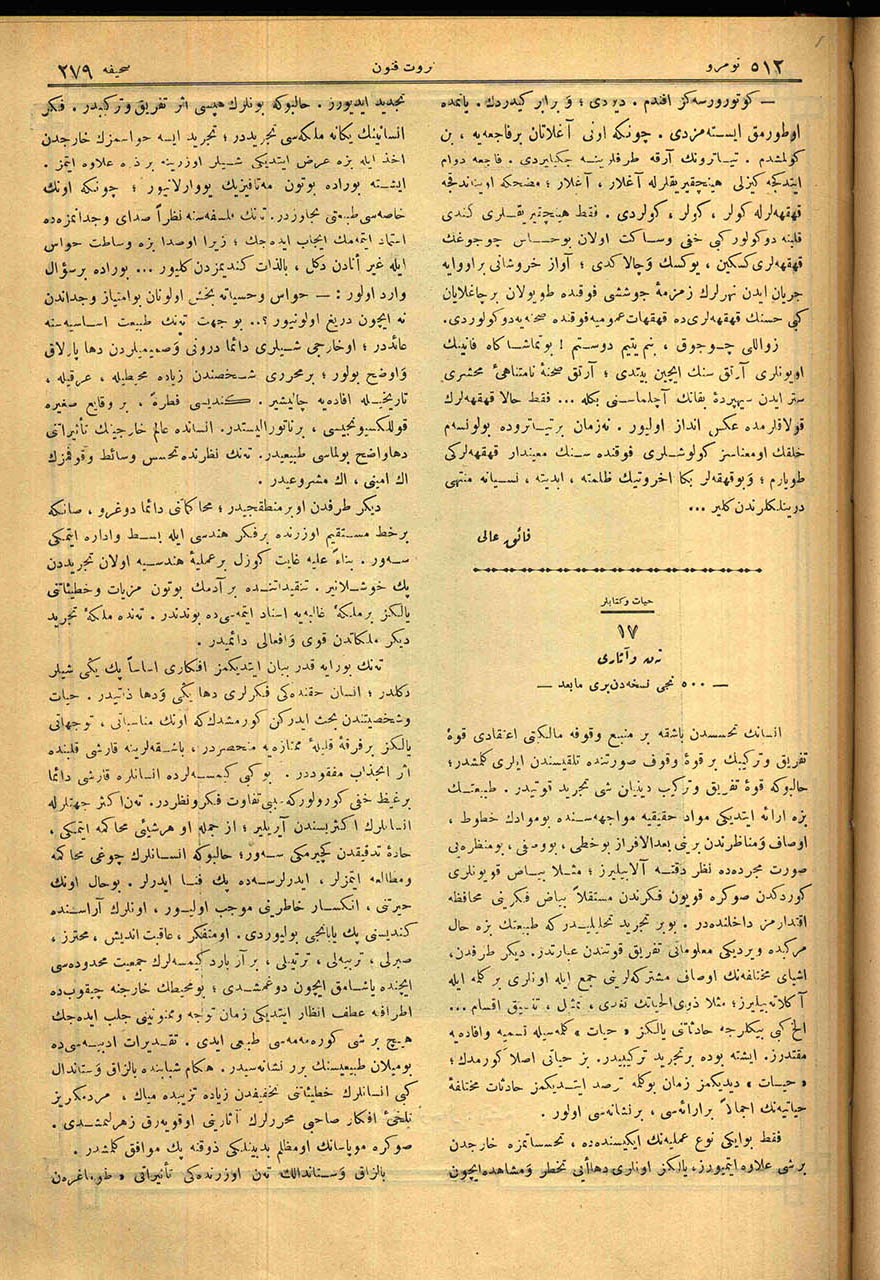 نومرو ٥١٢
ثروت فنون
صحیفه ٢٧٩
— كوتورورسه‌كز افندم . دیردی ؛ و برابر كیدردك . یاننده
اوطورمق ایسته‌مزدی . چونكه اونی آغلاتان بر فاجعه‌یه ، بن
كولمشدم . تیاترونك آرقه طرفلرینه چكیلیردی . فاجعه دوام
ایتدكجه كیزلی هیچقیریقلرله آغلار ، آغلار ؛ مضحكه اویناندقجه
قهقهه‌لرله كولر ، كولر ، كولردی . فقط هیچقیریقلری كندی
قلبنه دوكولور كبی خفی وساكت اولان بو حساس چوجوغك
قهقهه‌لری كسكین ، یوكسك وچالاكدی ؛ آواز خروشانی براووایه
جریان ایدن نهرلرك زمزمهٔ جوششی فوقنده طویولان برچاغلایان
كبی حسنك قهقهه‌لری‌ده قهقهات عمومیه‌فوقنده صحنه‌یه‌دوكولوردی.
زواللی چوجوق ، بنم یتیم دوستم ! بو تماشاكاه فانینك
اویونلری آرتق سنك ایچین بیتدی ؛ آرتق صحنهٔ نامتناهیٔ محشری
ستر ایدن سپهر بقانك آچلماسنی بكله ... فقط حالا قهقهه‌لرك
قولاقلرمده عكس انداز اولیور . نه‌زمان بر تیاتروده بولونسه‌م
خلقك اومعناسز كولوشلری فوقنده سنك معیندار قهقهه‌لركی
طویارم ؛ و بوقهقهه‌لر بكا اخروتیك ظلمته ، ابدیته ، نسیانه منتهی
درینلكلرندن كلیر ...
فائق عالی
حیات و كتابلر
١٧
تەن و آثاری
— ٥٠٠ نجی نسخه‌دن‌بری مابعد —
انسانك تحسسدن باشقه بر منبع وقوفه مالكیتی اعتقادی قوهٔ
تفریق وتركیبك بر قوهٔ وقوف صورتنده تلقیسندن ایلری كلمشدر؛
حالبوكه قوهٔ تفریق وتركیب دینیلن شی تجرید قوتیدر . طبیعتك
بزه ارائه ایتدیكی مواد حقیقیه مواجهه‌سنده بوموادك خطوط ،
اوصاف ومناظرندن برینی بعدالافراز بوخطی ، بووصفی ، بومنظره‌یی
صورت مجرده‌ده نظر دقته آلابیلیرز ؛ مثلا بیاض قویونلری
كوردكدن صوكره قویون فكرندن مستقلاً بیاض فكرینی محافظه
اقتدارمز داخلنده‌در . بوبر تجرید تحلیلیدر كه طبیعتك بزه حال
مركبده ویردیكی معلوماتی تفریق قوتندن عبارتدر. دیكر طرفدن،
اشیای مختلفه‌نك اوصاف مشتركه‌لرینی جمع ایله اونلری بر كلمه ایله
آكلاته‌بیلیرز ؛ مثلا ذوی‌الحیاتك تغدی ، تمثل ، تفریق اقسام ...
الخ كبی بیكلرجه حادثاتی یالكز « حیات » كلمه‌سیله تسمیه وافاده‌یه
مقتدرز. ایشته بوده برتجرید تركیبیدر. بز حیاتی اصلا كورمدك؛
« حیات » دیدیكمز زمان بوكله ترصد ایتدیكمز حادثات مختلفهٔ
حیاتیه‌نك اجمالاً بر ارائه‌سی ، برنشانه‌سی اولور .
فقط بوایكی نوع عملیه‌نك ایكیسنده‌ده ، تحسساتمزه خارجدن
بر شی علاوه ایتمیورز، یالكز اونلری دهاایی تخطر ومشاهده‌ایچون
تجدید ایدیورز . حالبوكه بونلرك هپسی اثر تفریق وتركیبدر . فكر
انسانینك یكانه ملكه‌سی تجریددر ؛ تجرید ایسه حواسمزك خارجدن
اخذ ایله بزه عرض ایتدیكی شیلر اوزرینه بر ذره علاوه ایتمز .
ایشته بوراده بوتون مه‌تافیزیك یووارلانیور ؛ چونكه اونك
خاصه‌سی طبیعتی تجاوزدر. تەنك فلسفه‌سنه نظراً صدای وجدانمزه‌ده
اعتماد ایتمه‌مك ایجاب ایده‌جك ؛ زیرا اوصدا بزه وساطت حواس
ایله غیر آنادن دكل ، بالذات كندیمزدن كلیور ... بوراده برسؤال
وارد اولور : — حواس وحسیاته بخش اولونان بوامتیاز وجداندن
نه ایچون دریغ اولونیور ؟.. بو جهت تەنك طبیعت اساسیه‌سنه
عائددر ؛ اوخارجی شیلری دائما درونی وصمیمیلردن دها پارلاق
واوضح بولور ؛ برمحرری شخصندن زیاده محیطیله ، عرقیله ،
تاریخیله افاده‌یه چالیشیر . كندیسی فطرةً ، بر وقایع صغیره
قوللكسیونجیسی ، برناتورالیستدر. انسانده عالم خارجینك تأثیراتی
دهاواضح بولماسی طبیعیدر. تەنك نظرنده تحسس وسائط وقوفمزك
اك امینی ، اك مشروعیدر .
دیكر طرفدن او بر منطقجیدر ؛ محاكماتی دائما دوغرو ، صانكه
برخط مستقیم اوزرنده برفكر هندسی ایله بسط واداره ایتمكی
سه‌ور . بناءً علیه غایت كوزل برعملیهٔ هندسیه اولان تجریددن
پك خوشلانیر . تنقیداتنده بر آدمك بوتون مزیات وخطیئاتنی
یالكز بر ملكهٔ غالبه‌یه اسناد ایتمه‌سی‌ده بوندندر . تەنده ملكهٔ تجرید
دیكر ملكاتدن قوی وافعالی دائمیدر .
تەنك بورایه قدر بیان ایتدیكمز افكاری اساساً پك یكی شیلر
دكلدر ؛ انسان حقنده‌كی فكرلری دها یكی ودها ذاتیدر . حیات
وشخصیتندن بحث ایدركن كورمشدك‌كه اونك مناسباتی ، توجهاتی
یالكز برفرقهٔ قلیلهٔ ممتازه‌یه منحصردر ، باشقه‌لرینه قارشی قلبنده
اثر انجذاب مفقوددر . بو كبی كیمسه‌لرده انسانلره قارشی دائما
برغیظ خفی كورولوركه سببی تفاوت فكرونظردر. تەن‌اكثر جهتلرله
انسانلرك اكثریسندن آیریلیر ؛ از جمله او هرشیئی محاكمه ایتمكی ،
حادهٔ تدقیقدن كچیرمكی سه‌ور؛ حالبوكه انسانلرك چوغی محاكمه
ومطالعه ایتمزلر ، ایدرلرسه‌ده پك فنا ایدرلر . بوحال اونك
حیرتنی ، انكسار خاطرینی موجب اولیور ، اونلرك آراسنده
كندیسنی پك یابانجی بولیوردی . اومتفكر ، عاقبت اندیش ، محترز ،
صبرلی ، تربیه‌لی ، ترتیبلی ، بر آز بارد كیمسه‌لرك جمعیت محدوده‌سی
ایچنده یاشامق ایچون دوغمشدی ؛ بومحیطك خارجنه چیقوب‌ده
اطرافه عطف انظار ایتدیكی زمان توجه وممنونیتی جلب ایده‌جك
هیچ بر شی كوره‌مه‌مه‌سی طبیعی ایدی . تقدیرات ادبیه‌سی‌ده
بومیلان طبیعیسنك برر نشانه‌سیدر. هنكام شبابنده بالزاق وستاندال
كبی انسانلرك خطیئاتنی تخفیفدن زیاده تزییده میال ، مردمكریز
تلخیٔ افكار صاحبی محررلرك آثارینی اوقویه‌رق زهرلنمشدی .
صوكره موپاسانك اومظلم بدبینلكی ذوقنه پك موافق كلمشدر .
بالزاق وستاندالك تەن اوزرنده‌كی تأثیراتی « طوماغره‌ن